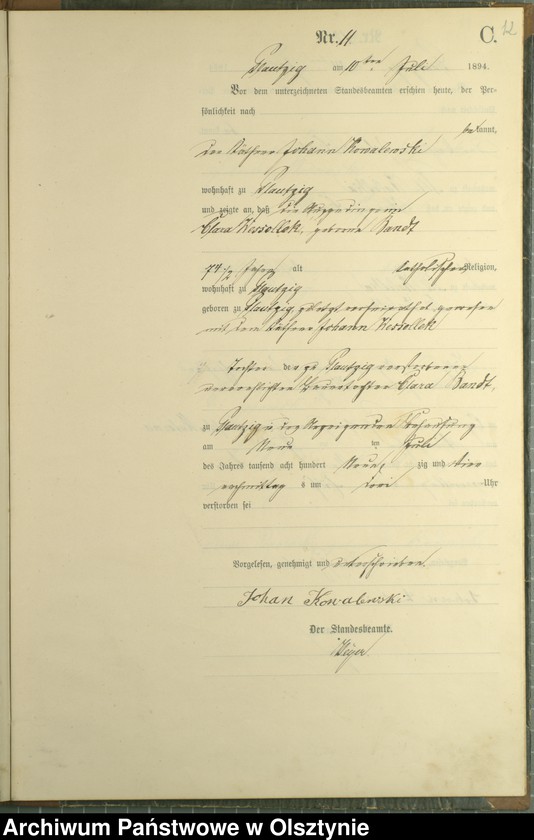 Nr. 11
C.
12
Plautzig am 10ten Juli 1894.
Vor dem unterzeichneten Standesbeamten erschien heute, der Per-
sönlichkeit nach
bekannt,
der Käthner Johann Kowalewski
wohnhaft zu Plautzig
und zeigte an, daß die
Clara Kessollek, geborne Bandt
74 1/2 Jahre alt katholischer Religion,
wohnhaft zu Plautzig
geboren zu Plautzig, zuletzt verheirathet gewesen
mit dem Käthner Johann Kessollek
Tochter der zu Plautzig verstorbenen
unverehelichten Clara Bandt,
zu Plautzig in des Anzeigenden Behausung
am Neun ten Juli
des Jahres tausend acht hundert Neun zig und vier
nachmittag s um drei Uhr
verstorben sei
Vorgelesen, genehmigt und unterschrieben.
Johan Kowalewski
Der Standesbeamte.
Archiwum Państwowe w Olsztynie